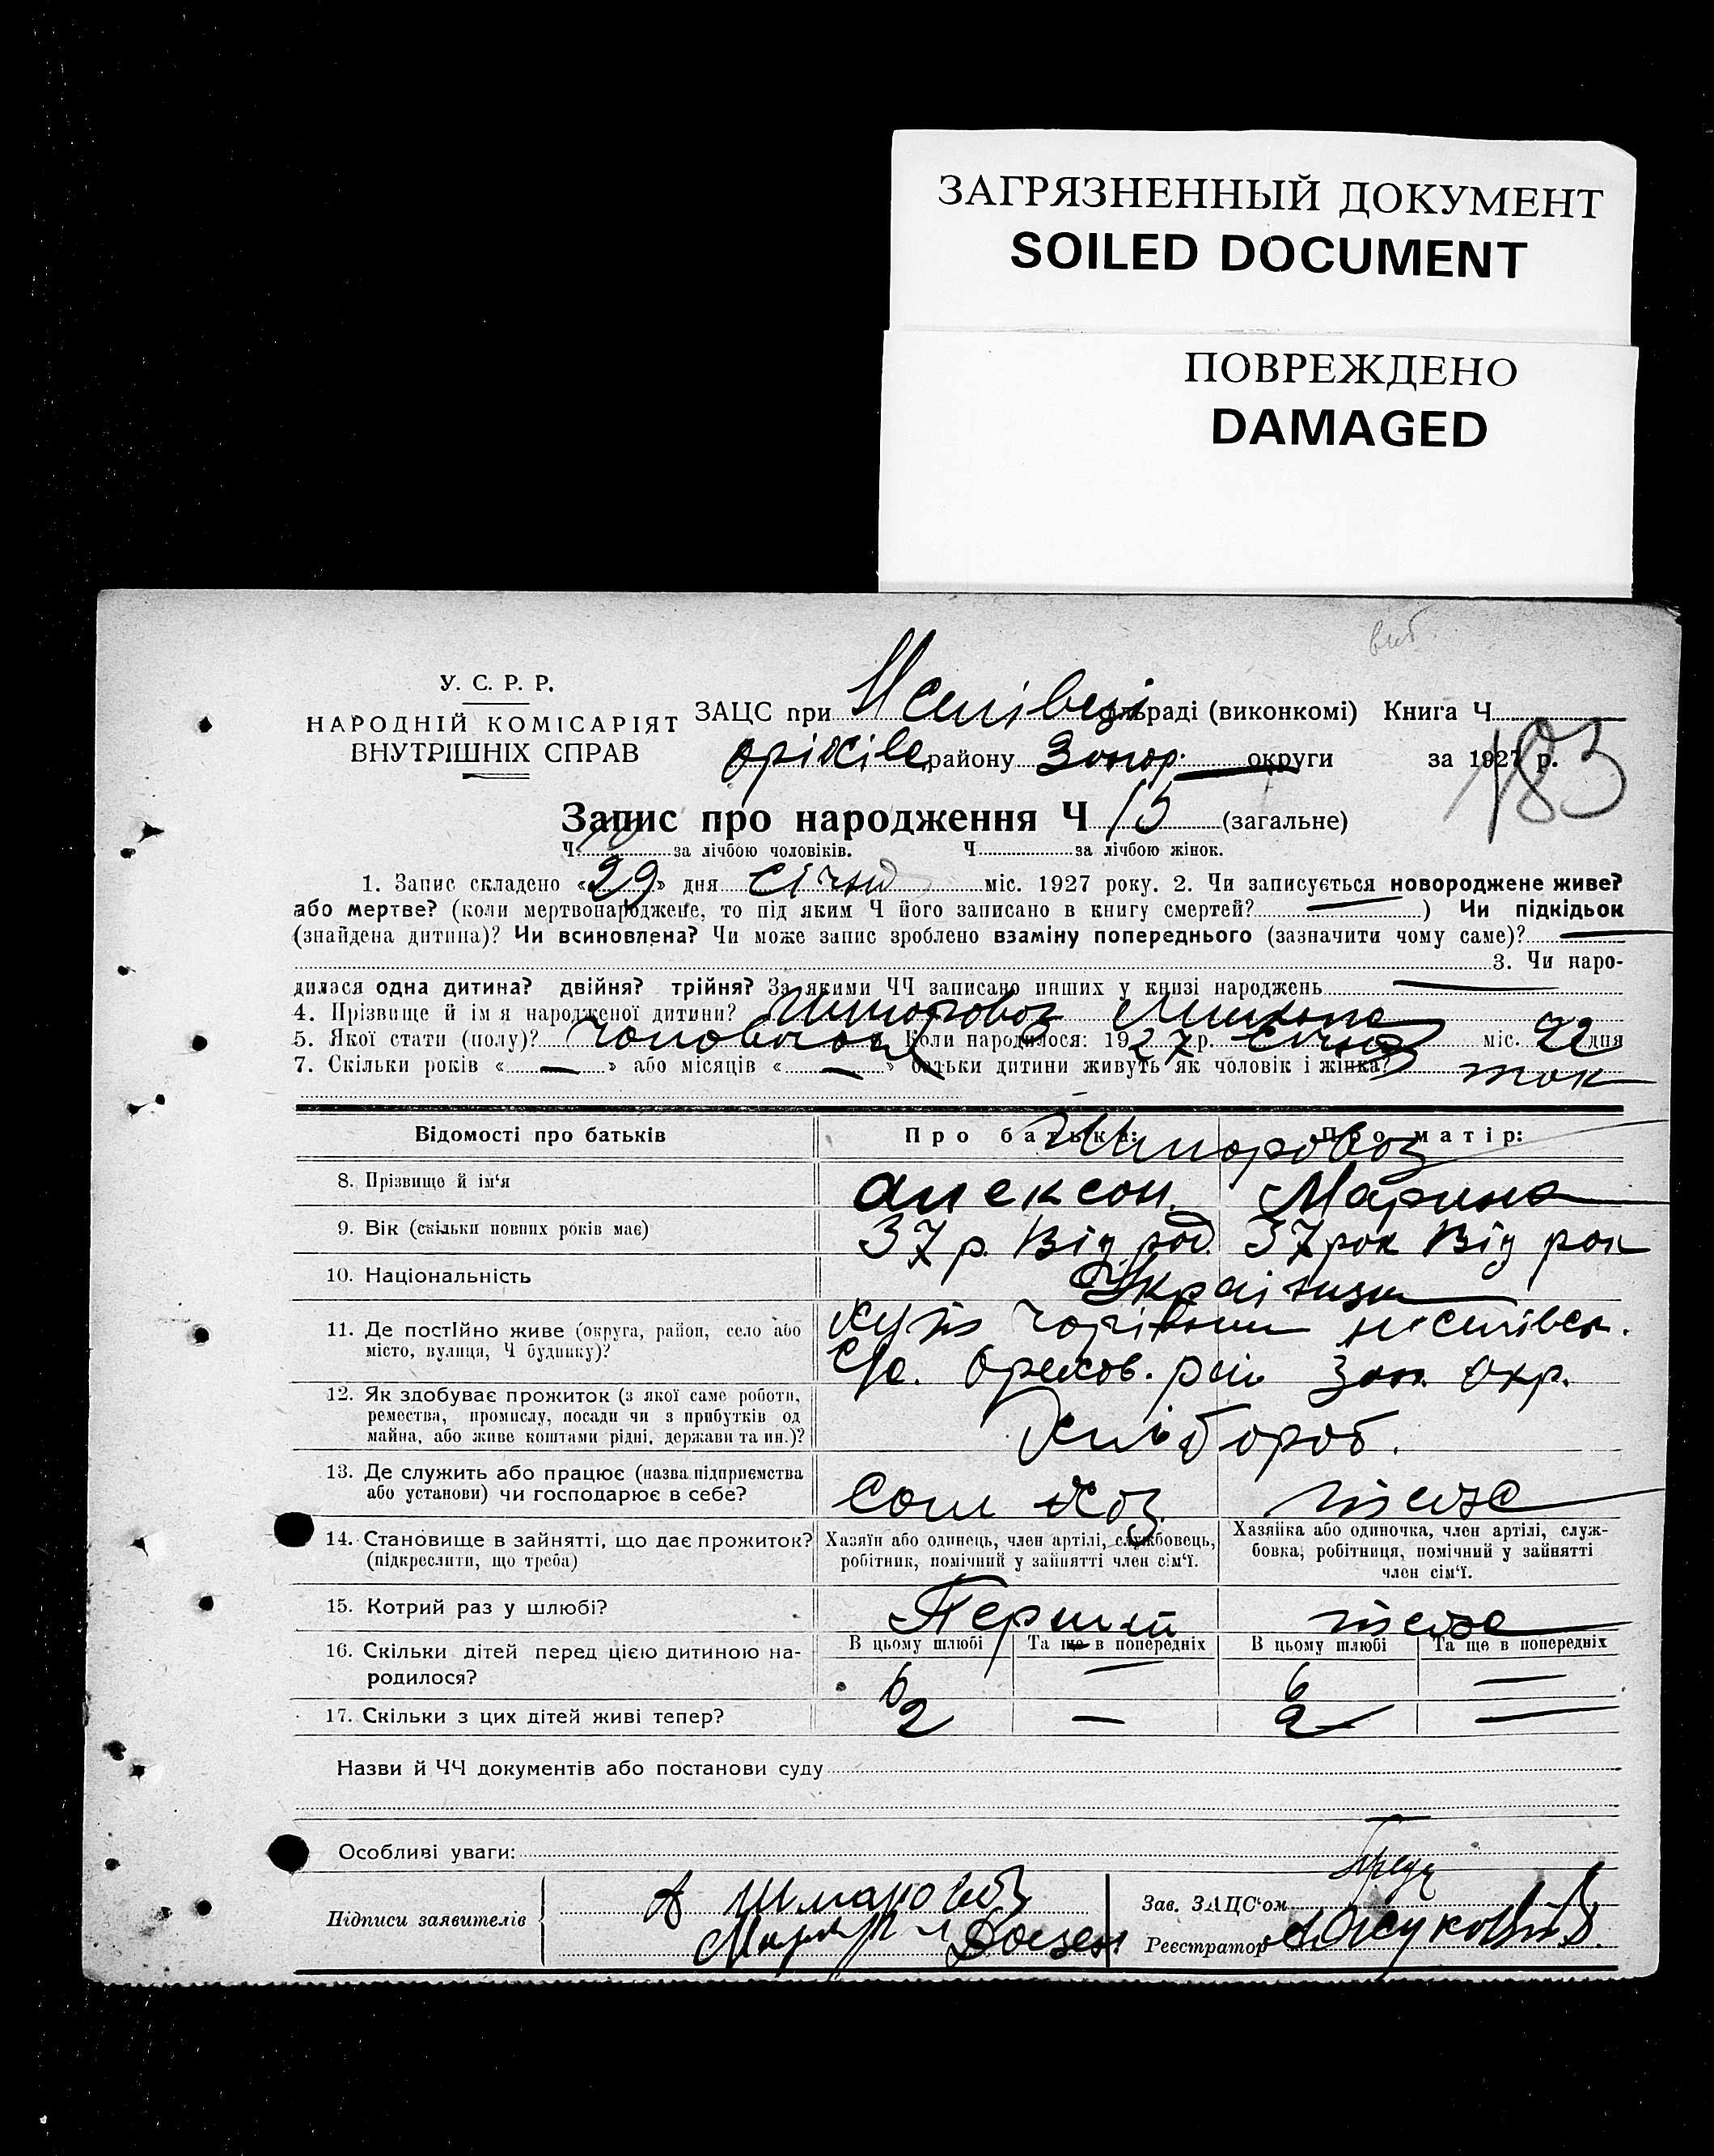 ЗАГРЯЗНЕННЫЙ ДОКУМЕНТ
SOILED DOCUMENT
ПОВРЕЖДЕНО
DAMAGED
У. С. Р. Р.
НАРОДНІЙ КОМІСАРІЯТ
ВНУТРІШНІХ СПРАВ
ЗАЦС при сільраді (виконкомі) Книга Ч
району Запор. округи за 1927 р.
183
Запис про народження Ч 15 (загальне)
Ч. за лічбою чоловіків. Ч. за лічбою жінок.
1. Запис складено «29» дня січня міс. 1927 року. 2. Чи записується новороджене живе?
або мертве? (коли мертвонароджене, то під яким Ч його записано в книгу смертей? — ) Чи підкідьок
(знайдена дитина)? Чи всиновлена? Чи може запис зроблено взаміну попереднього (зазначити чому саме)? —
3. Чи наро-
дилася одна дитина? двійня? трійня? За якими ЧЧ записано инших у книзі народжень —
4. Прізвище й ім'я народженої дитини? Шморовоз Микола
5. Якої стати (полу)? Коли народилося: 1927 р. січня міс. 22 дня
7. Скільки років « — » або місяців « — » батьки дитини живуть як чоловік і жінка? так
Відомості про батьків Про батька: Про матір:
Шморовоз
8. Прізвище й ім'я Алексей Марина
9. Вік (скільки повних років має) 37 р. Від род. 37 рок Від рок
10. Національність Українці
11. Де постійно живе (округа, район, село або
місто, вулиця, Ч будинку)?
С/с. Орехов. рай Зап. Окр.
12. Як здобуває прожиток (з якої саме роботи,
ремества, промислу, посади чи з прибутків од
майна, або живе коштами рідні, держави та ин.)?
Хлібороб.
13. Де служить або працює (назва підприємства
або установи) чи господарює в себе?
14. Становище в зайнятті, що дає прожиток?
(підкреслити, що треба)
Хазяїн або одинець, член артілі, службовець,
робітник, помічний у зайнятті член сім'ї.
Хазяйка або одиночка, член артілі, служ-
бовка, робітниця, помічний у зайнятті
член сім'ї.
15. Котрий раз у шлюбі? Перший теже
В цьому шлюбі Та ще в попередніх В цьому шлюбі Та ще в попередніх
16. Скільки дітей перед цією дитиною на-
родилося?
6 — 6 —
17. Скільки з цих дітей живі тепер? 2 — 2 —
Назви й ЧЧ документів або постанови суду
Особливі уваги:
Підписи заявителів А Шмаровоз
Зав. ЗАЦС'ом
Реєстратор